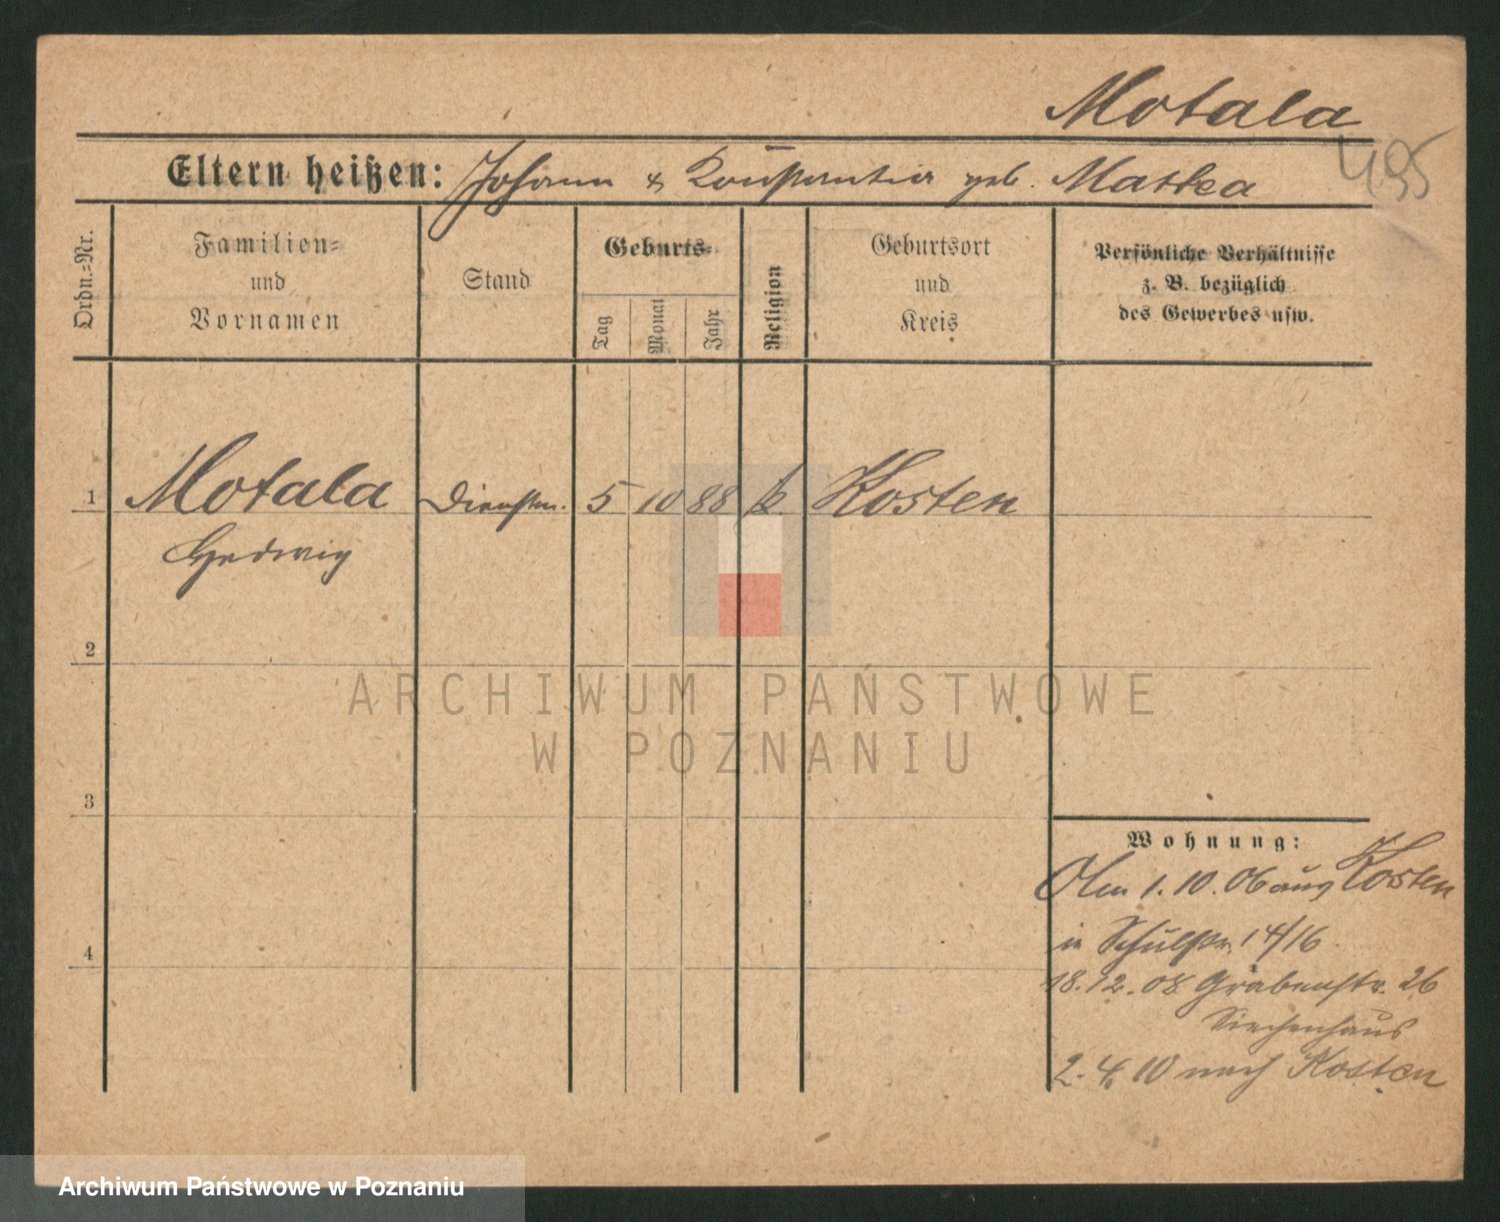 Motala
495
Eltern heißen: Johann & Konstantia geb. Matka
Ordn.-Nr.
Familien-
und
Vornamen
Stand
Geburts-
Tag
Monat
Jahr
Religion
Geburtsort
und
Kreis
Persönliche Verhältnisse
z. B. bezüglich
des Gewerbes usw.
1 Motala Dienstm. 5 10 88 k Kosten
Hedwig
2
ARCHIWUM PAŃSTWOWE
W POZNANIU
3
Wohnung:
Am 1. 10. 06 aus Kosten
in Schulstr. 14/16
4
18.12.08 Grabenstr. 26
Siechenhaus
2.4.10 nach Kosten
Archiwum Państwowe w Poznaniu